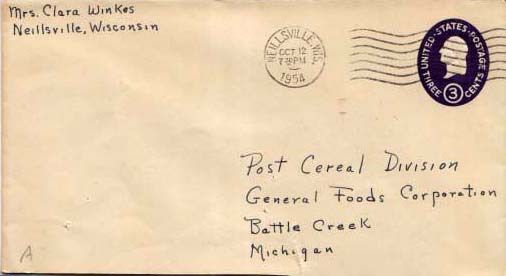 Mrs. Clara Winkes
Neillsville, Wisconsin
NEILLSVILLE, WIS.
OCT 12
PM
1954
UNITED STATES POSTAGE
THREE 3 CENTS
Post Cereal Division
General Foods Corporation
Battle Creek
Michigan
A